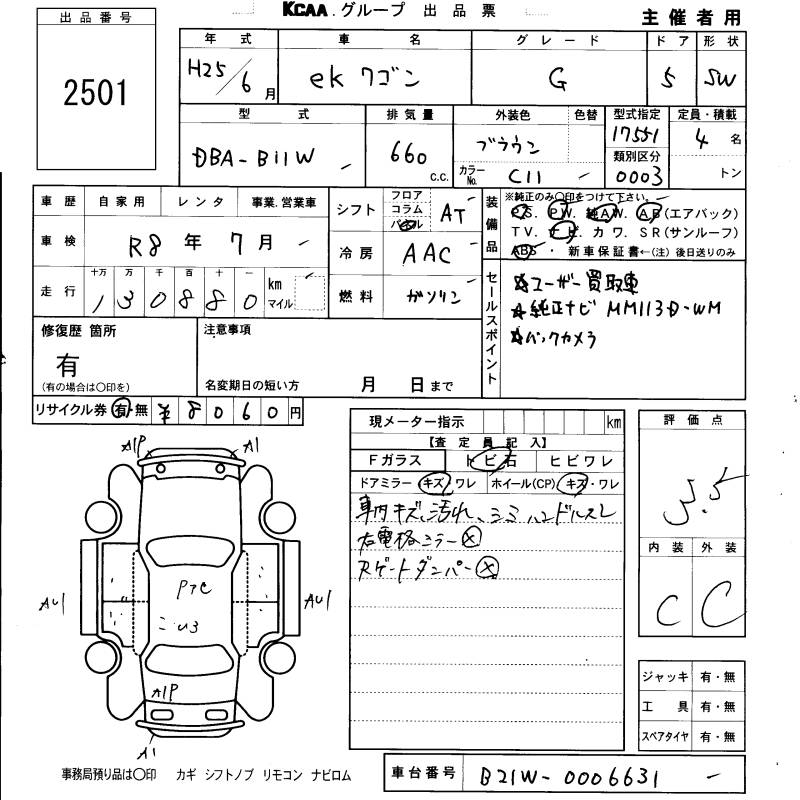 KCAA.グループ 出品票
主催者用
出品番号
2501
年式 車名 グレード ドア 形状
H25/6月 ekワゴン G 5 SW
型式 排気量 外装色 色替 型式指定 定員・積載
DBA-B11W 660 c.c. ブラウン 17551 4名
カラーNo. C11 類別区分 0003 トン
車歴 自家用 レンタ 事業.営業車
車検 R8年7月
走行 十万 万 千 百 十 一 km マイル
130880
シフト フロア コラム パネル AT
冷房 AAC
燃料 ガソリン
装備品
※純正のみ○印をつけて下さい。
P.S. P.W. 純A.W. A.B(エアバック)
T.V. ナビ. カワ. S.R(サンルーフ)
ABS・ 新車保証書←(注) 後日送りのみ
セールスポイント
☆ユーザー買取車
☆純正ナビ MM113D-WM
☆バックカメラ
修復歴 箇所
有
(有の場合は○印を)
注意事項
名変期日の短い方 月 日まで
リサイクル券 有・無 ¥8060円
現メーター指示 km
【査定員記入】
Fガラス トビ石 ヒビワレ
ドアミラー キズ.ワレ ホイール(CP) キズ・ワレ
車内キズ、汚れ、シミ ハンドルスレ
右電格ミラー×
Rゲートダンパー×
評価点
3.5
内装 外装
C C
A1P A1
AU1 AU1
PアC
U3
A1P
A1
ジャッキ 有・無
工具 有・無
スペアタイヤ 有・無
事務局預り品は○印 カギ シフトノブ リモコン ナビロム
車台番号 B21W-0006631